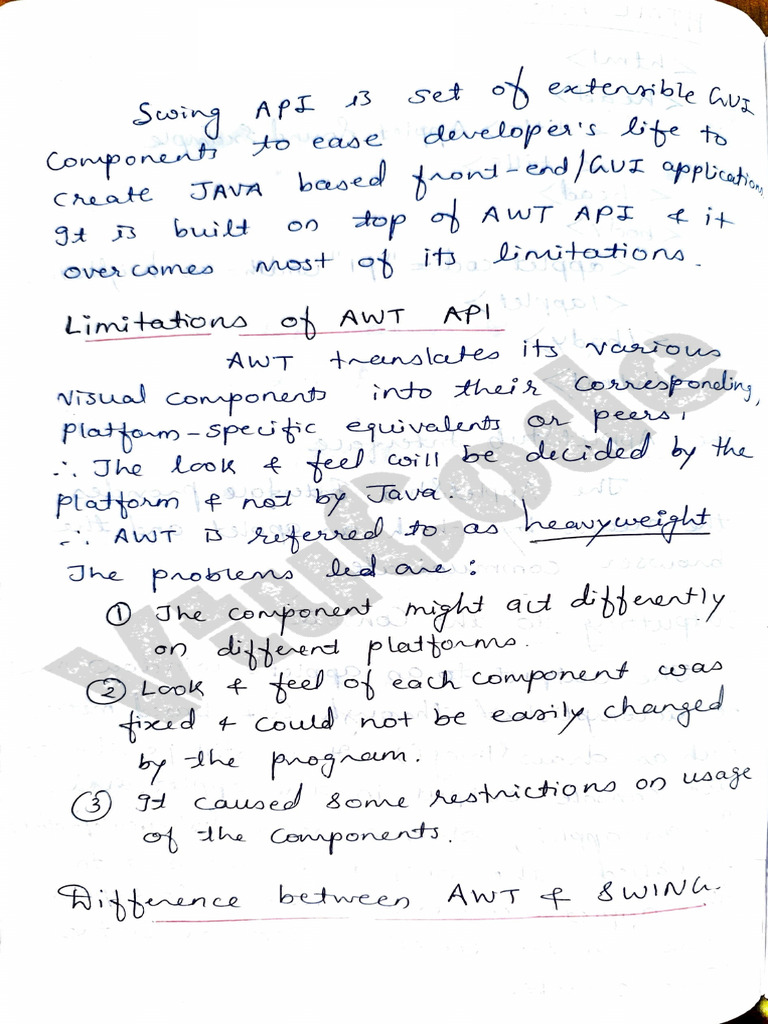 Swing API is set of extensible GUI
Components to ease developer's life to
create JAVA based front-end/GUI applications
It is built on top of AWT API & it
overcomes most of its limitations.
Limitations of AWT API
AWT translates its various
visual components into their corresponding,
platform-specific equivalents or peers,
∴ The look & feel will be decided by the
platform & not by Java.
∴ AWT is referred to as heavyweight
The problems led are:
① The component might act differently
on different platforms.
② Look & feel of each component was
fixed & could not be easily changed
by the program.
③ It caused some restrictions on usage
of the components.
Difference between AWT & SWING.
VtuCode